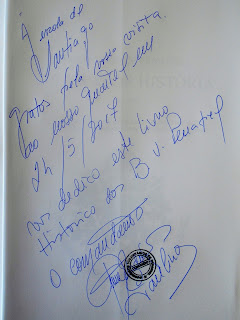 À escola de
Santiago
Gratos pela vossa visita
ao nosso quartel em
24/5/2017
vos dedico este livro
Historico dos B. V. Penafiel
O comandante